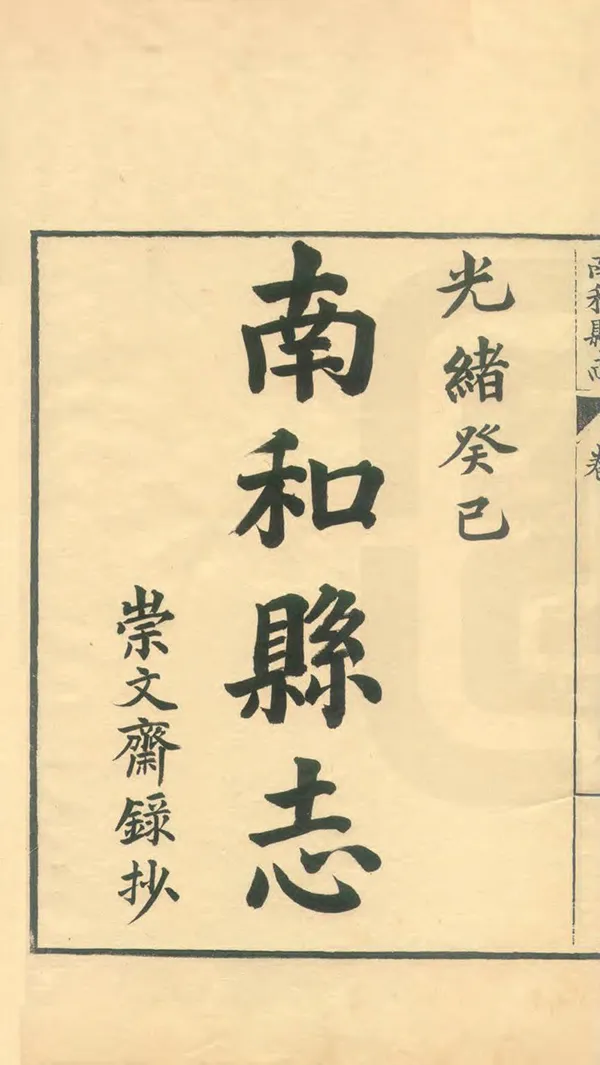 光緒癸巳
南和縣志
崇文齋錄抄
南和縣志
卷